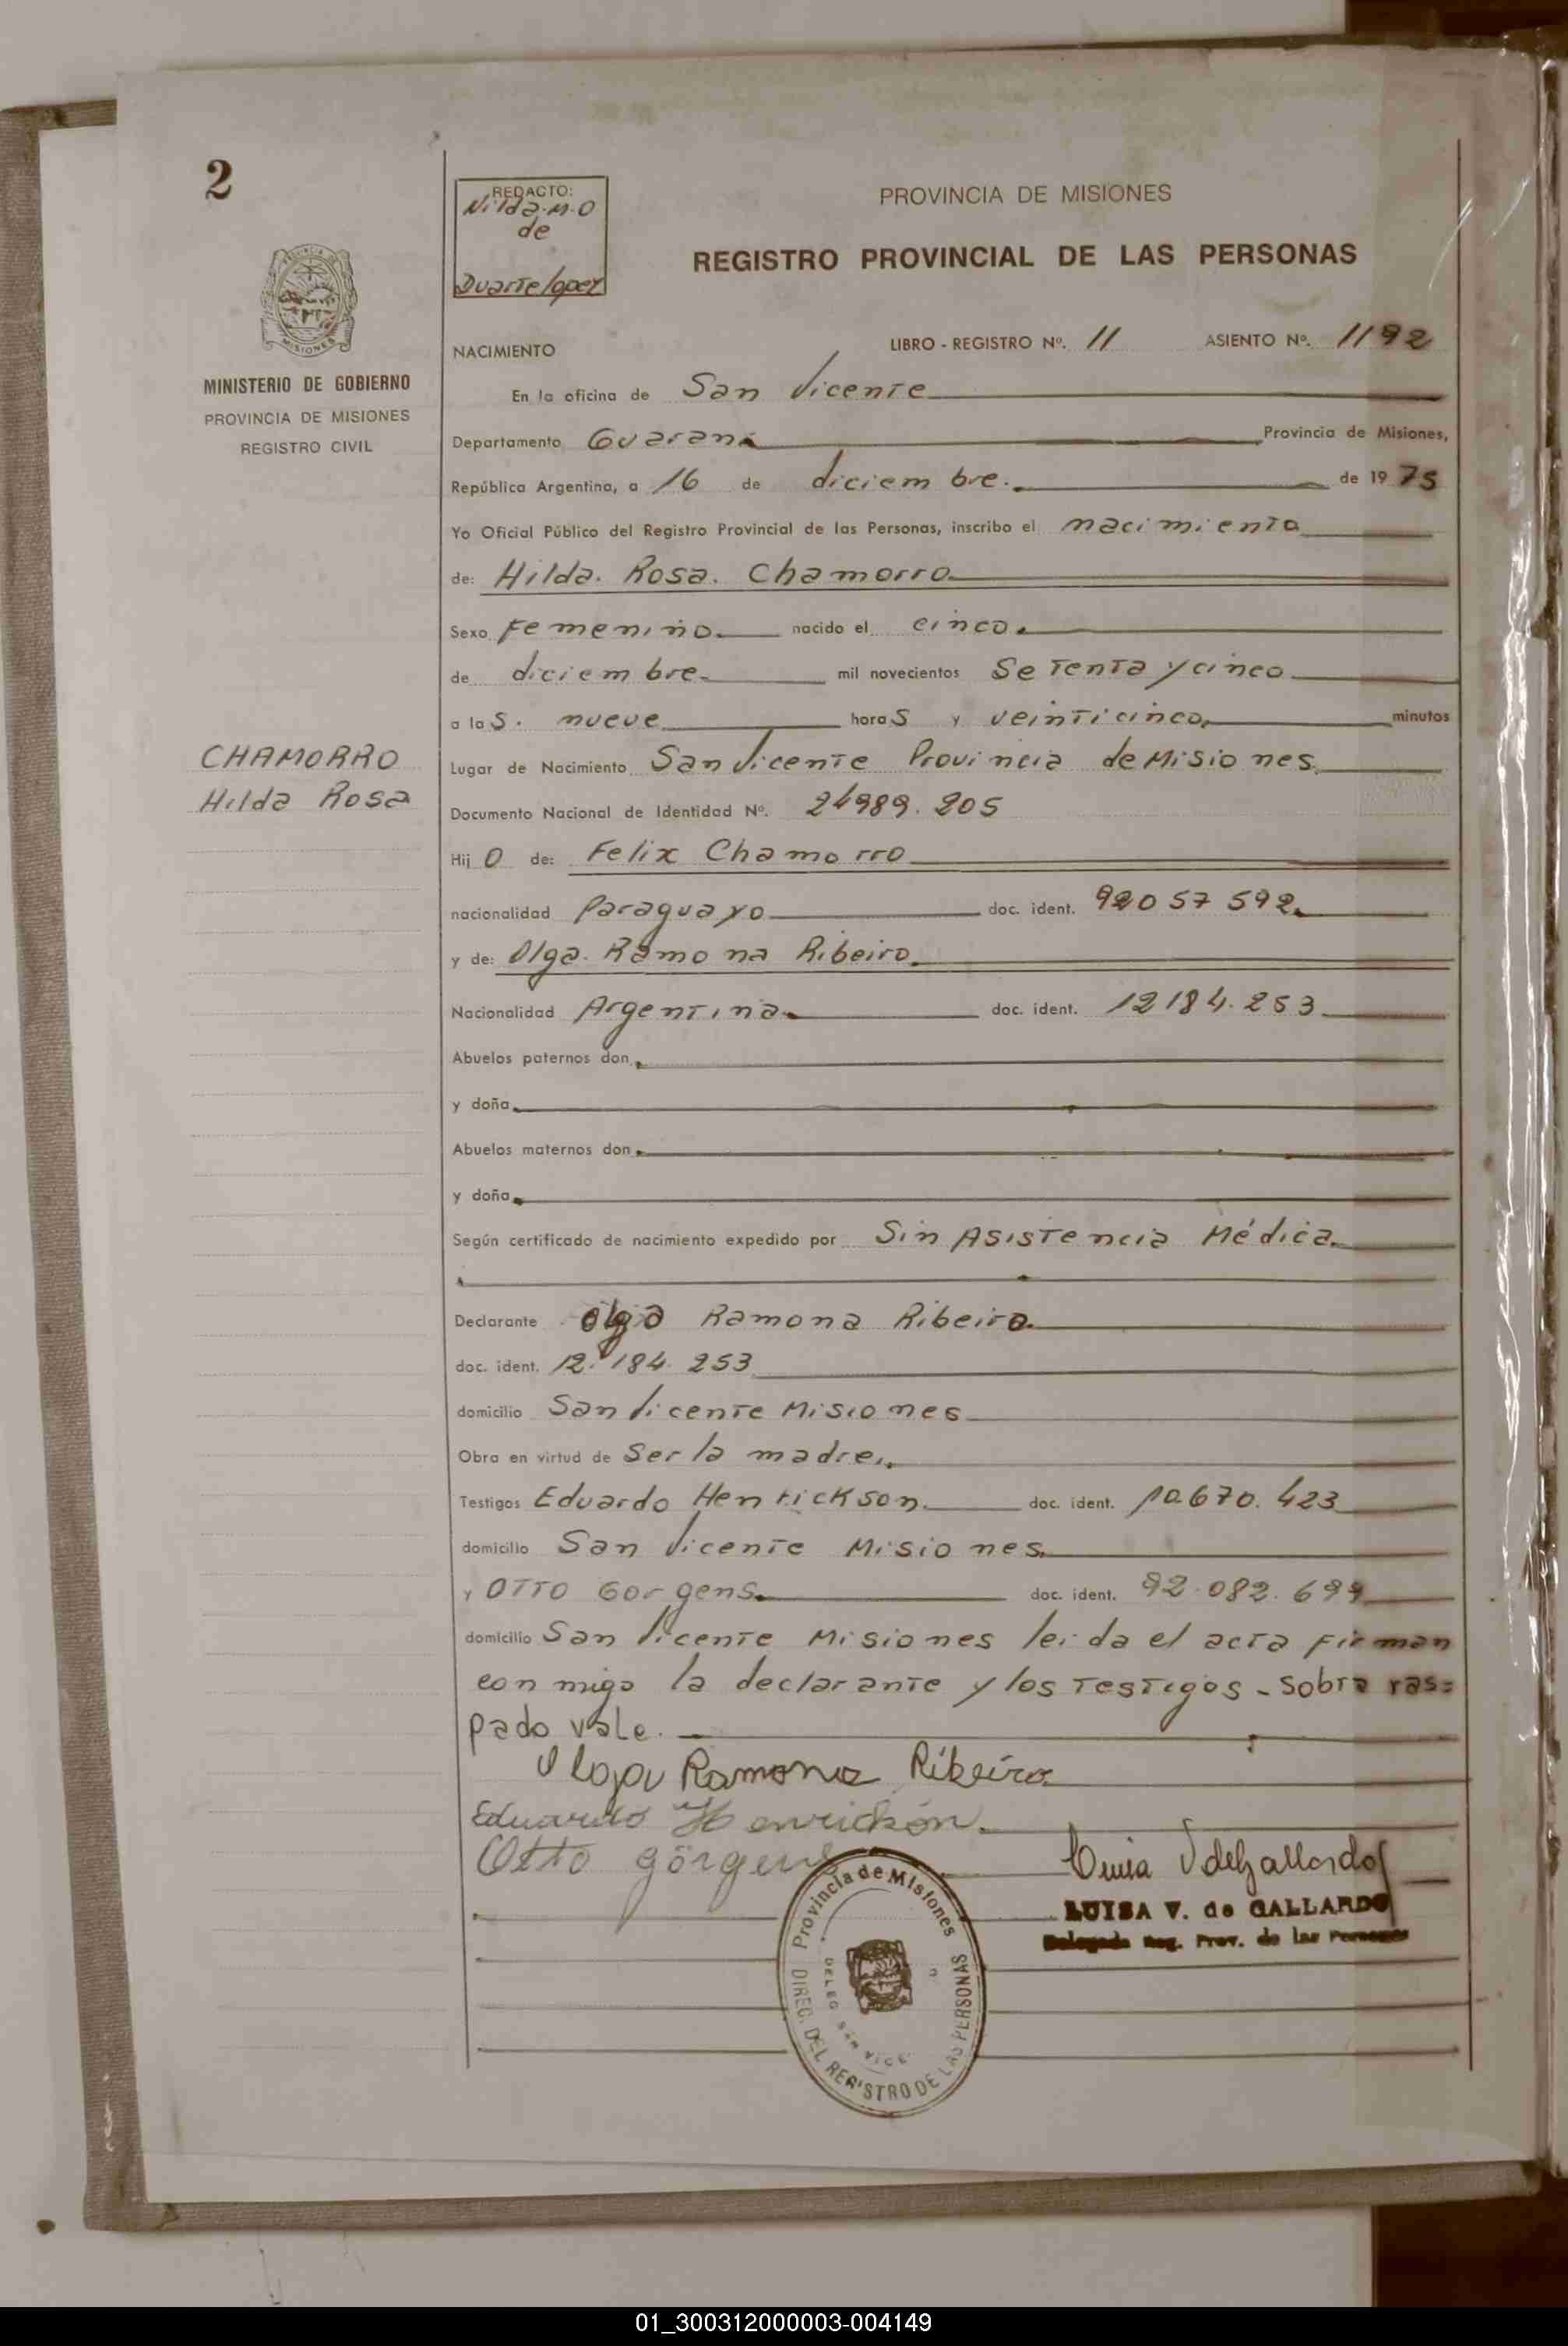 2
REDACTO:
Nilda.M.O
de
Duarte lopez
PROVINCIA DE MISIONES
REGISTRO PROVINCIAL DE LAS PERSONAS
MISIONES
MINISTERIO DE GOBIERNO
PROVINCIA DE MISIONES
REGISTRO CIVIL
NACIMIENTO LIBRO - REGISTRO Nº. 11 ASIENTO Nº. 1192
En la oficina de San Vicente
Departamento Guarani Provincia de Misiones,
República Argentina, a 16 de diciembre. de 1975
Yo Oficial Público del Registro Provincial de las Personas, inscribo el nacimiento
de: Hilda. Rosa. Chamorro
Sexo Femenino. nacido el cinco.
de diciembre mil novecientos Setenta y cinco
a las. nueve horas y veinticinco, minutos
CHAMORRO
Hilda Rosa
Lugar de Nacimiento San Vicente Provincia de Misiones
Documento Nacional de Identidad Nº. 24989.205
Hij O de: Felix Chamorro
nacionalidad Paraguayo doc. ident. 92057592.
y de: Olga. Ramona Ribeiro.
Nacionalidad Argentina doc. ident. 12184.253
Abuelos paternos don
y doña
Abuelos maternos don
y doña
Según certificado de nacimiento expedido por Sin Asistencia Médica.
Declarante Olga Ramona Ribeiro.
doc. ident. 12.184.253
domicilio San Vicente Misiones
Obra en virtud de Ser la madre.
Testigos Eduardo Henrickson. doc. ident. 10.670.423
domicilio San Vicente Misiones.
y OTTO Gorgens. doc. ident. 92.082.699
domicilio San Vicente Misiones leida el acta firman
con migo la declarante y los Testigos - sobra ras=
pado vale.
Olga Ramona Ribeiro
Eduardo Henrickson.
Otto görgens
Luisa V de Gallardo
LUISA V. de GALLARDO
Delegada Reg. Prov. de las Personas
Provincia de Misiones
DIREC. DEL REGISTRO DE LAS PERSONAS
DELEG. SAN VICE
01_300312000003-004149